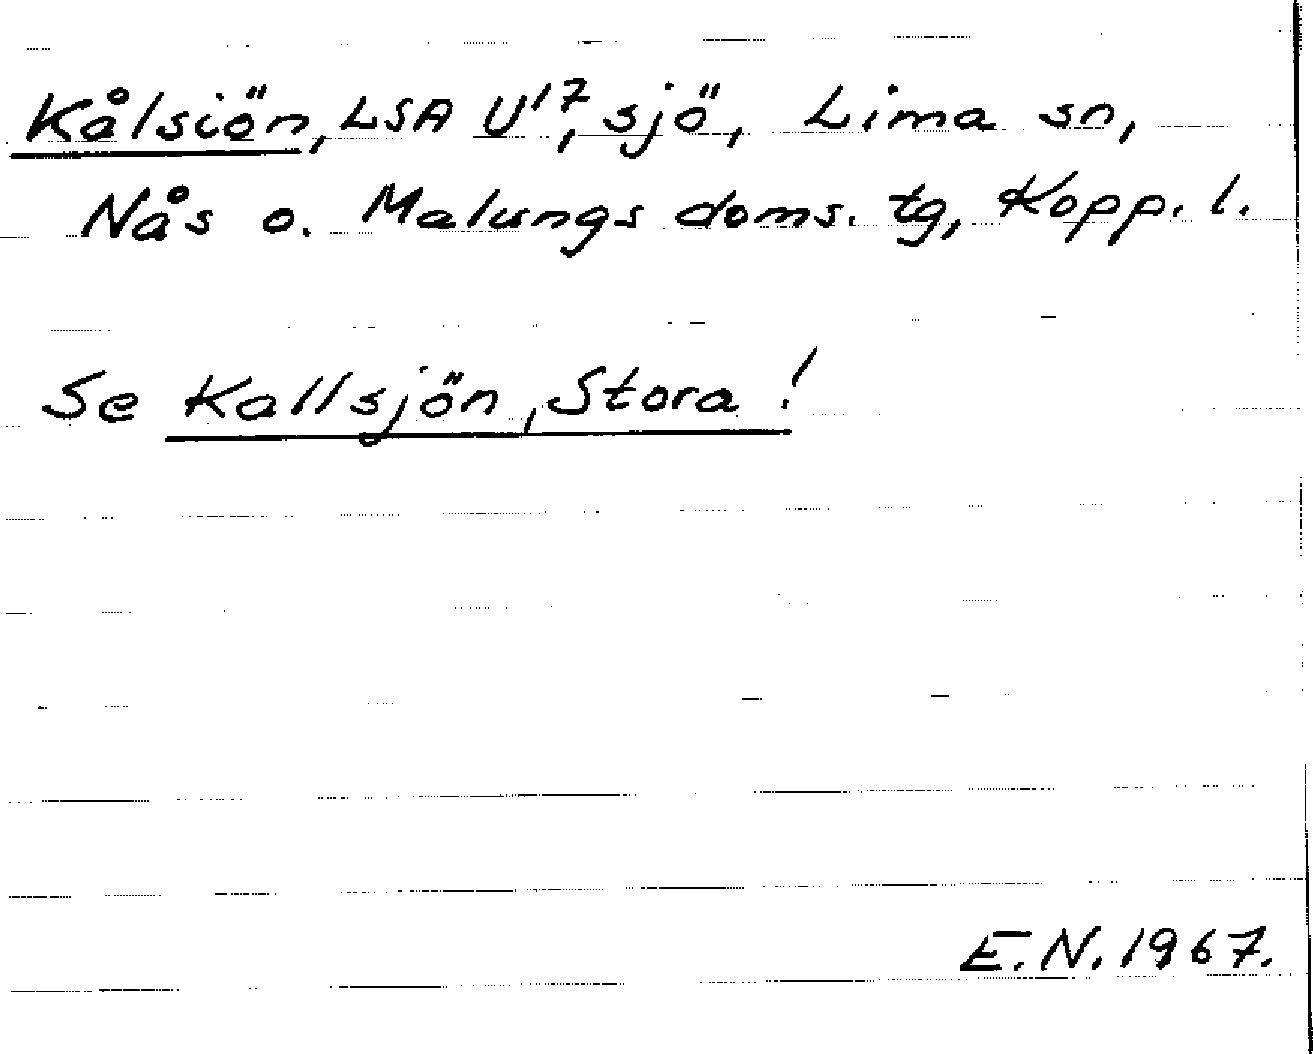 Kålsiön, LSA U¹⁷, sjö, Lima sn,
Nås o. Malungs doms. tg, Kopp. l.
Se Kallsjön, Stora!
E.N. 1967.